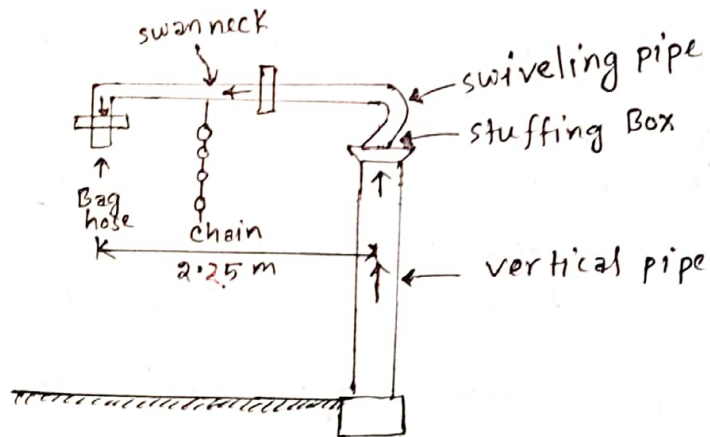 swan neck
swiveling pipe
stuffing Box
Bag
hose
chain
2.25 m
vertical pipe